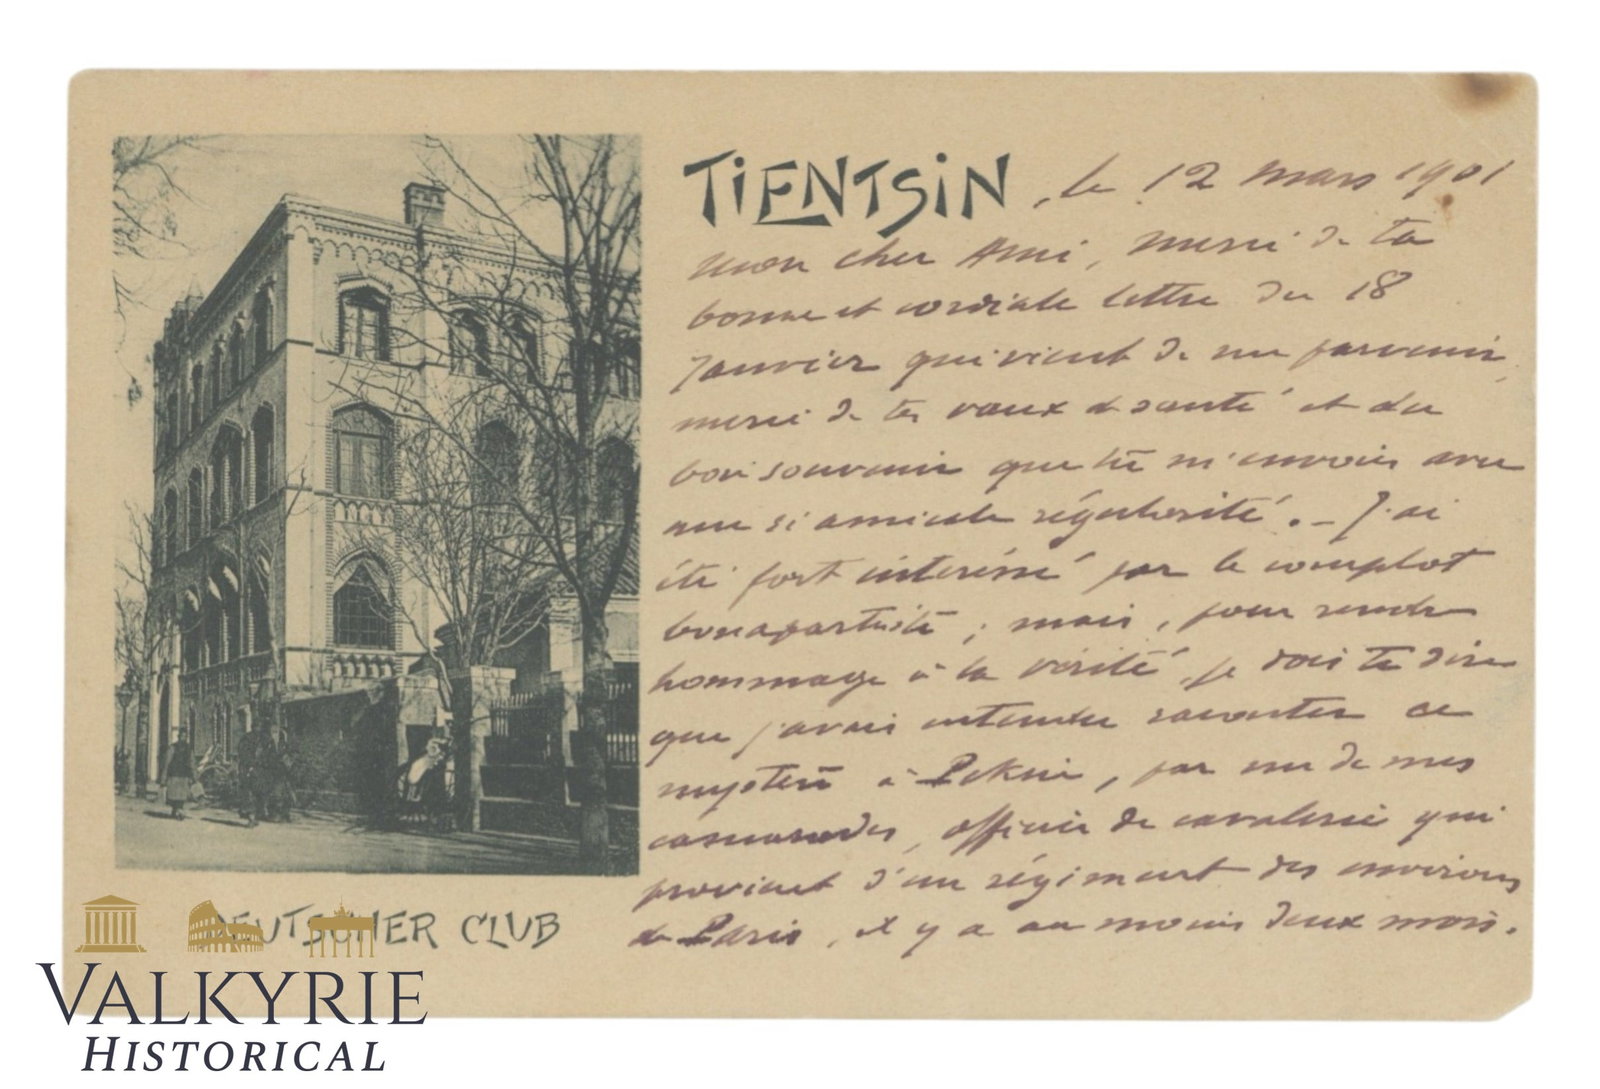 TIENTSIN, le 12 mars 1901
mon cher Ami, merci de ta
bonne et cordiale lettre du 18
Janvier qui vient de me parvenir,
merci de tes vœux de santé et du
bon souvenir que tu m'envois avec
une si amicale régularité. – J'ai
été fort intéressé par le complot
bonapartiste ; mais, pour rendre
hommage à la vérité, je dois te dire
que j'avais entendu raconter ce
mystère à Pékin, par un de mes
camarades, officier de cavalerie qui
provient d'un régiment des environs
de Paris, il y a au moins deux mois.
DEUTSCHER CLUB
VALKYRIE
HISTORICAL